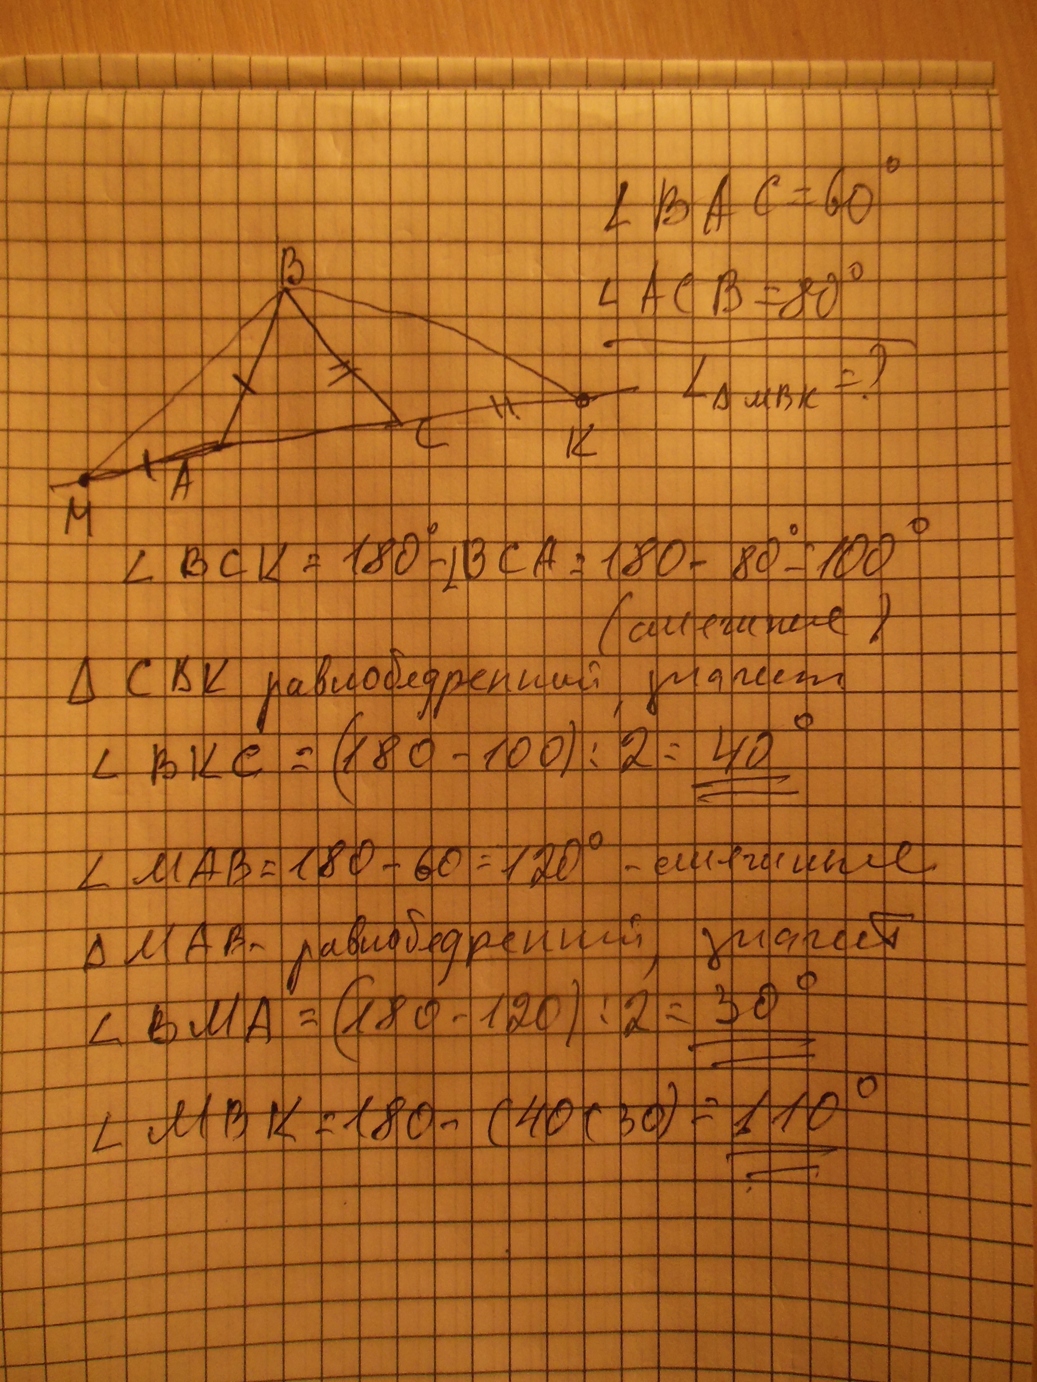 ∠BAC=60°
∠ACB=80°
∠ΔMBK=?
B
M
A
C
K
∠BCK=180°-∠BCA=180-80°=100°
(смежные)
ΔCBK равнобедренный, значит
∠BKC=(180-100):2=40°
∠MAB=180-60=120° -смежные
ΔMAB- равнобедренный, значит
∠BMA=(180-120):2=30°
∠MBK=180-(40(30)=110°